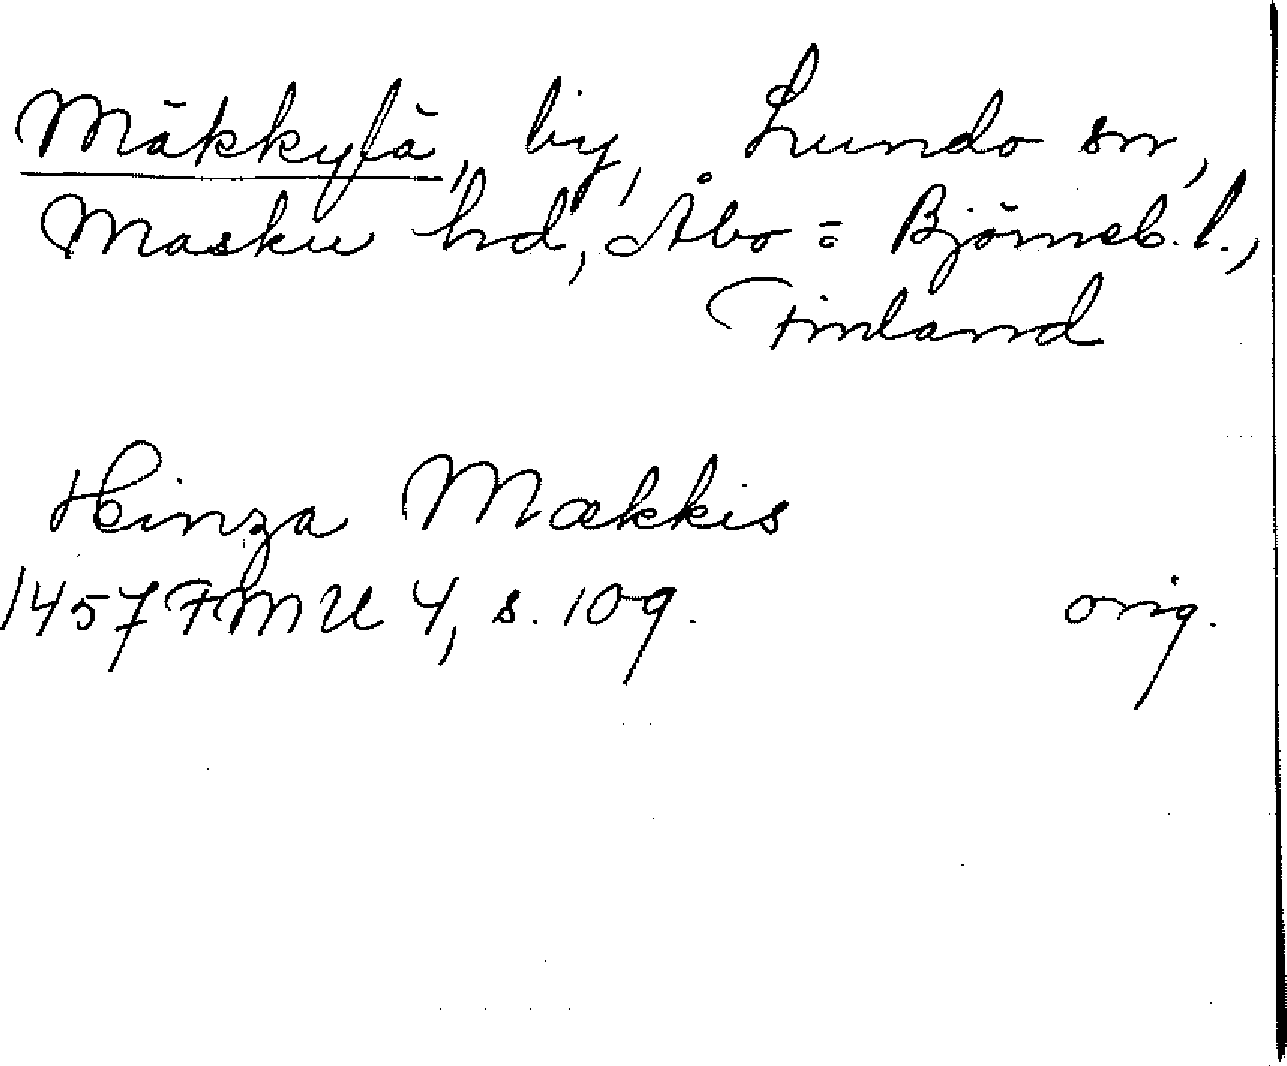 Mäkkylä, by, Lundo sn,
Masku hd, Åbo = Björneb. l.,
Finland
Hinza Mækkis
1457 FMU 4, s. 109. orig.